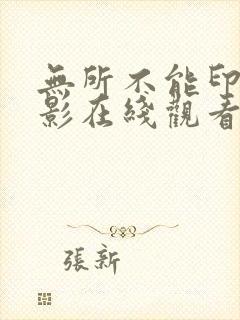 無所不能印
影在綫觀看
張新